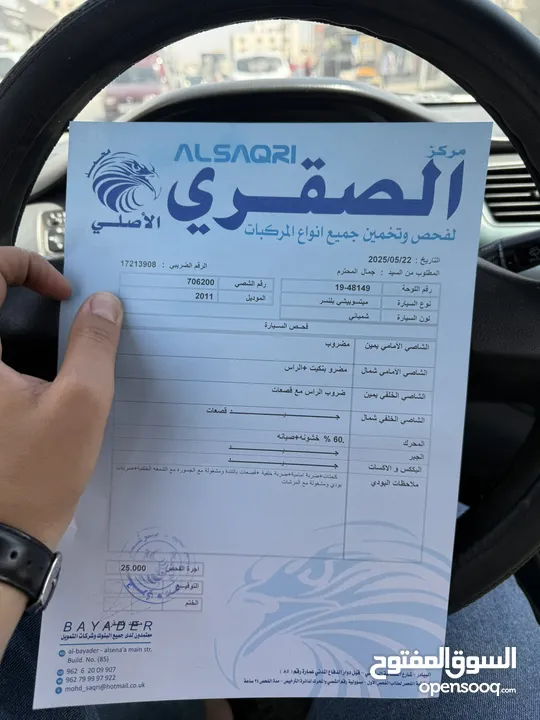 ALSAQRI
مركز
الصقري
الأصلي
لفحص وتخمين جميع انواع المركبات
التاريخ : 2025/05/22
الرقم الضريبي : 17213908
المطلوب من السيد : جمال المحترم
رقم اللوحة 19-48149 رقم الشصي 706200
نوع السيارة ميتسوبيشي بلنسر الموديل 2011
لون السيارة شمباني
فحص السيارة
الشاصي الأمامي يمين مضروب
الشاصي الأمامي شمال مضرو بتكيت +الراس
الشاصي الخلفي يمين ضروب الراس مع قصعات
الشاصي الخلفي شمال جـــــيد قصعات
المحرك 60 % خشونه+صيانه.
الجير جـــــيد
البكس و الاكسات جـــــيد
ملاحظات البودي
بودي ومشغولة مع
اجرة الفحص 25.000
التوقيع
الختم
BAYADER
معتمدون لدى جميع البنوك وشركات التمويل
al-bayader - alsena'a main str.
Build. No. (85)
962 6 20 09 907
962 79 99 97 922
mohd_saqri@hotmail.co.uk
السوق المفتوح
opensooq.com